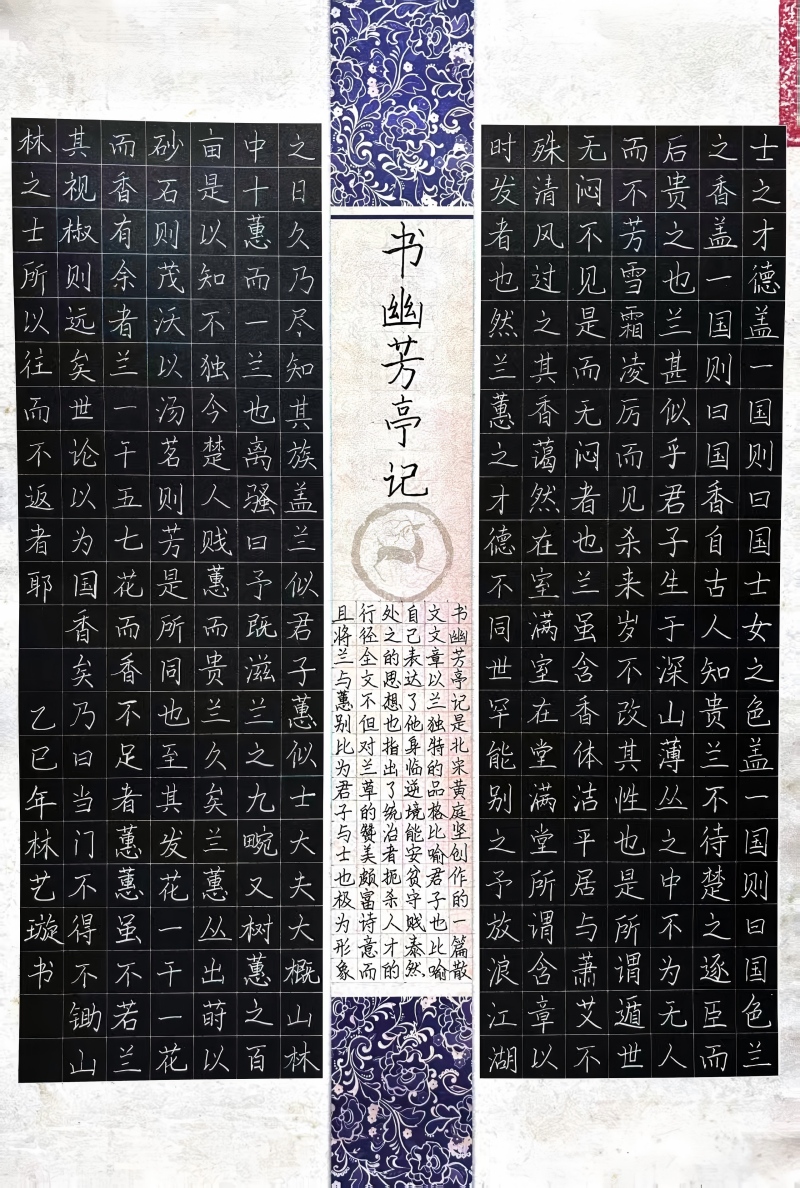 士之才德盖一国则曰国士女之色盖一国则曰国色兰
之香盖一国则曰国香自古人知贵兰不待楚之逐臣而
后贵之也兰甚似乎君子生于深山薄丛之中不为无人
而不芳雪霜凌厉而见杀来岁不改其性也是所谓遁世
无闷不见是而无闷者也兰虽含香体洁平居与萧艾不
殊清风过之其香蔼然在室满室在堂满堂所谓含章以
时发者也然兰蕙之才德不同世罕能别之予放浪江湖
书幽芳亭记
书幽芳亭记是北宋黄庭坚创作的一篇散
文文章以兰独特的品格比喻君子也比喻
自己表达了他身临逆境能安贫守贱泰然
处之的思想也指出了统治者扼杀人才的
行径全文不但对兰草的赞美颇富诗意而
且将兰与蕙别比为君子与士也极为形象
之日久乃尽知其族盖兰似君子蕙似士大夫大概山林
中十蕙而一兰也离骚曰予既滋兰之九畹又树蕙之百
亩是以知不独今楚人贱蕙而贵兰久矣兰蕙丛出莳以
砂石则茂沃以汤茗则芳是所同也至其发花一干一花
而香有余者兰一干五七花而香不足者蕙蕙虽不若兰
其视椒则远矣世论以为国香矣乃曰当门不得不锄山
林之士所以往而不返者耶
乙巳年林艺璇书